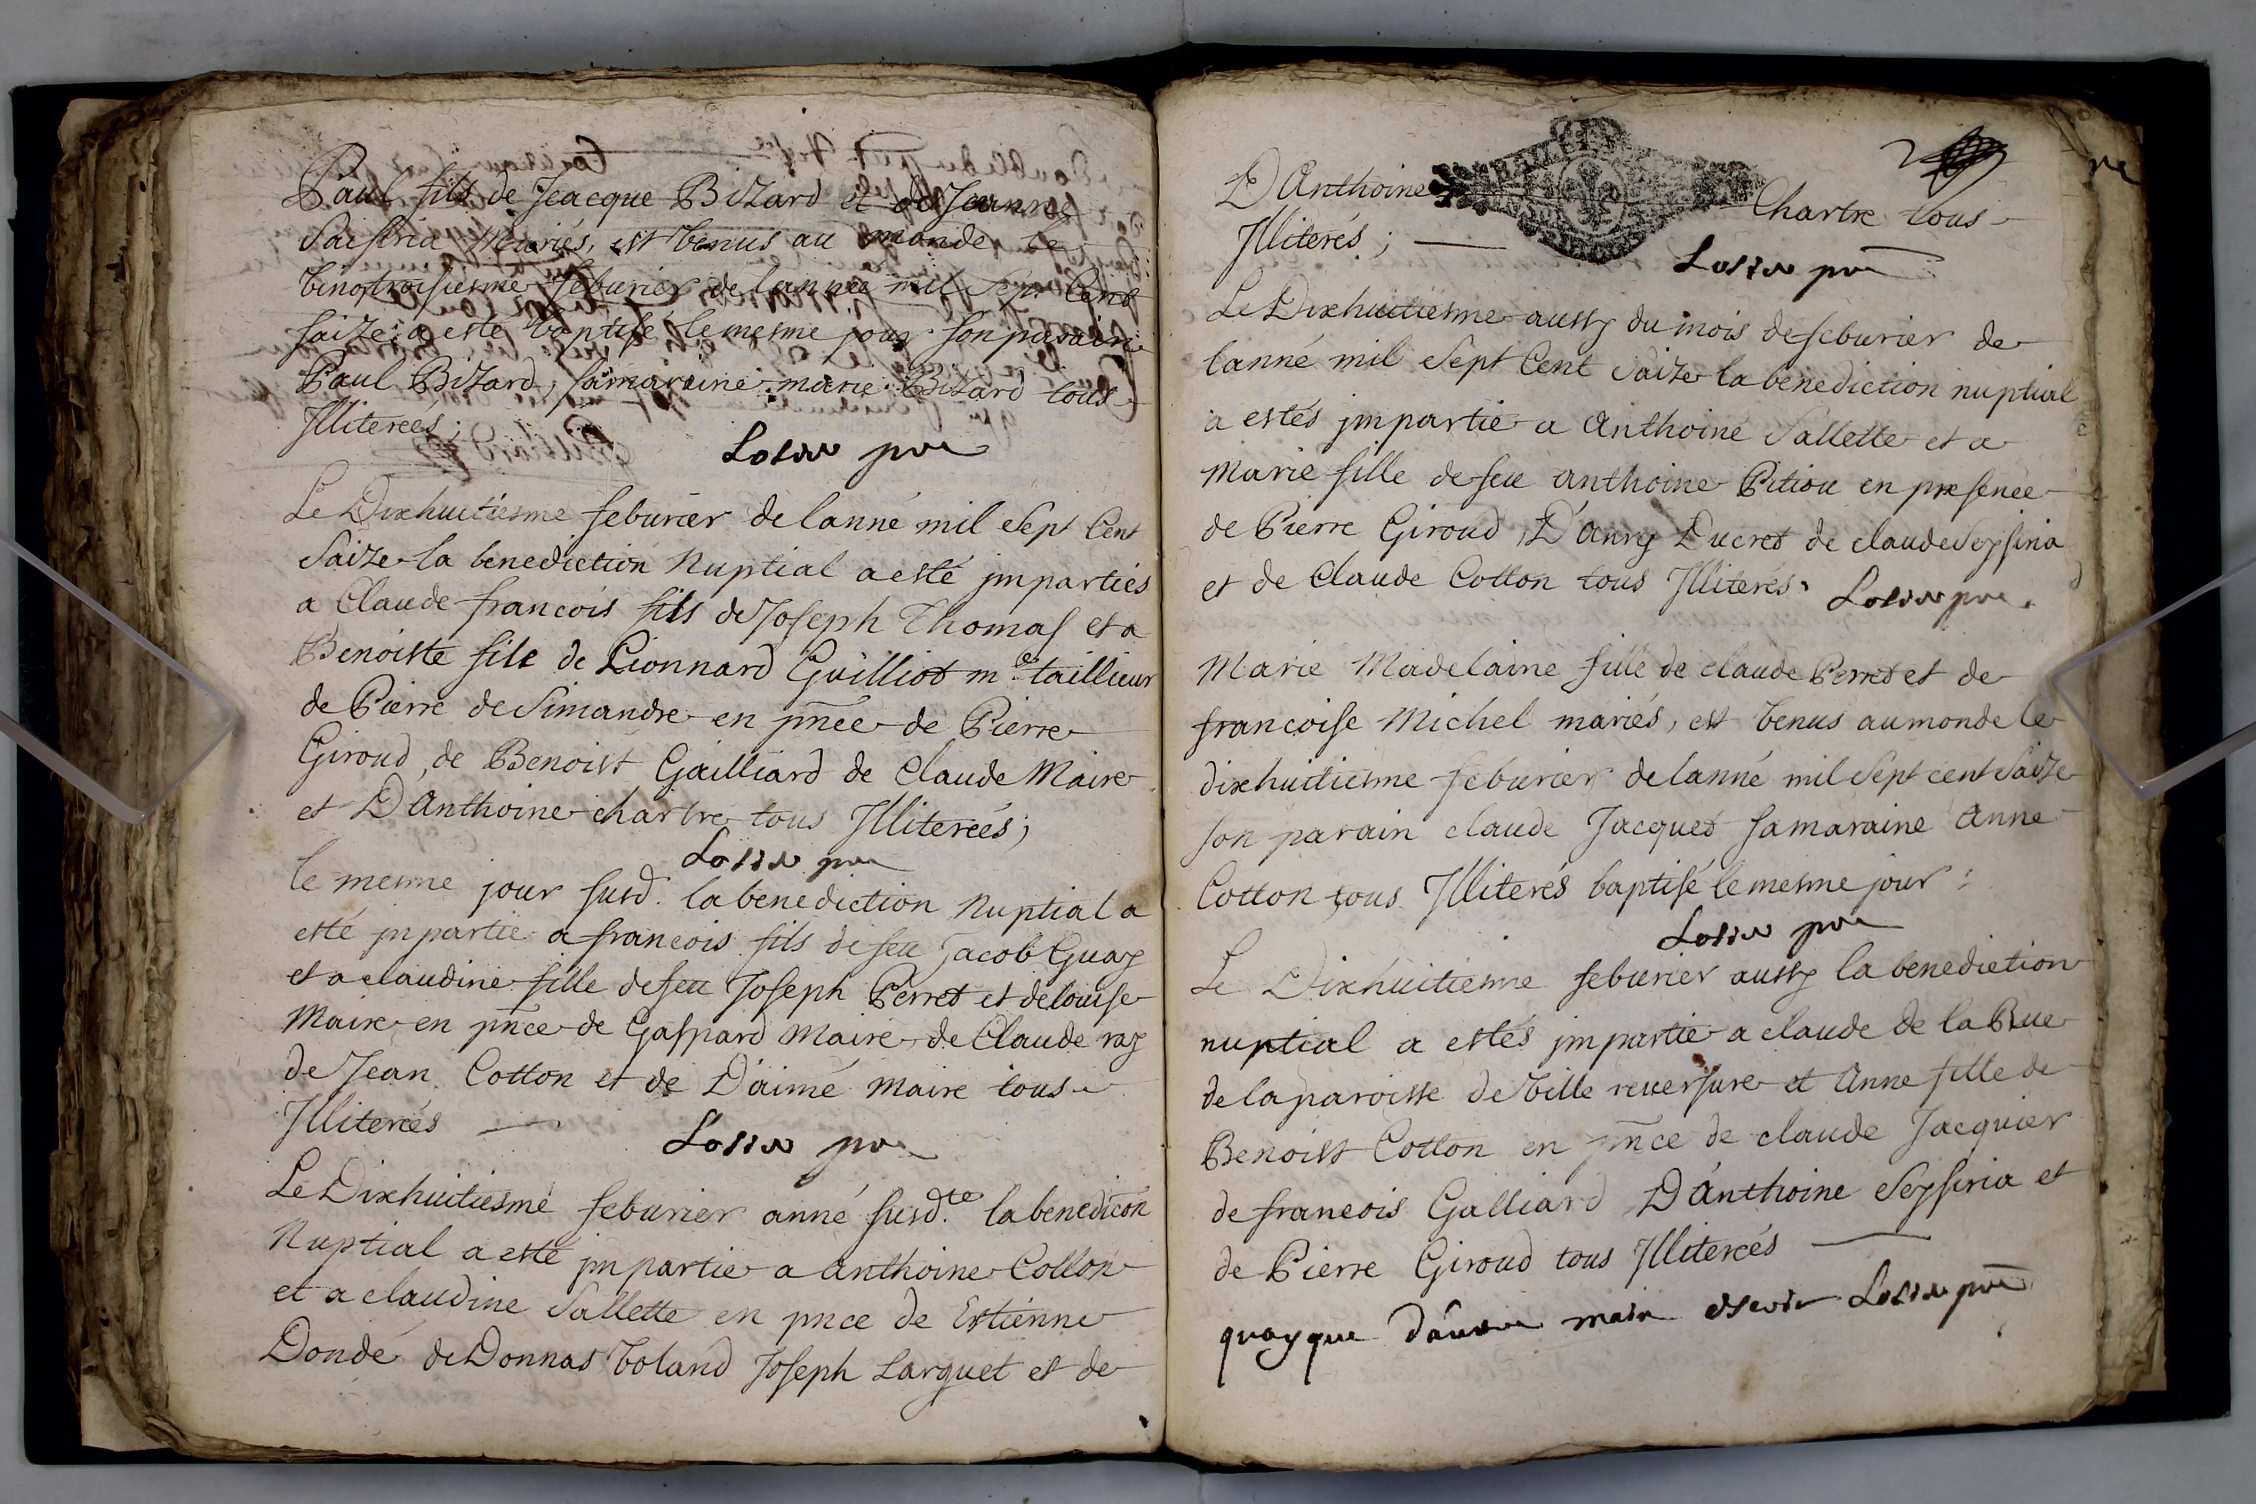 Paul fils de Jeacque Bizard et de Jeanne
Saisiria Mariés, est venus au monde le
vingtroisiesme feburier de lannee mil Sept Cent
saize a este baptisé le mesme jour son parain
Paul Bizard, sa maraine marie Bizard tous
Jlliterées;
pre
Le Dixhuitiesme feburier de lanné mil Sept Cent
Saize la benediction Nuptial a esté jmparties
a Claude francois fils de Joseph Thomas et a
Benoiste file de Lionnard Guilliot me taillieur
de Pierre de Simandre en pnce de Pierre
Giroud, de Benoist Gailliard de Claude Maire
et D'Anthoine chartre tous Jlliterées;
pre
le mesme jour susd. la benediction Nuptial a
esté jnpartie a francois fils de feu Jacob Guay
et a claudine fille de feu Joseph Perret et de louise
Maire en pnce de Gaspard Maire de Claude ray
de Jean Cotton et de D'aimé Maire tous
Jlliterées
pre
Le Dixhuitiesme feburier anné susd.te la benedicon
Nuptial a esté jnpartie a anthoine Collon
et a claudine Sallette en pnce de Estienne
Dondé de Donnas Voland Joseph Larguet et de
D'Anthoine Chartre tous
Jlliterés;
pre
Le Dixhuitiesme aussy du mois de feburier de
lanné mil Sept Cent Saize la benediction nuptial
a estés jmpartie a Anthoine Sallette et a
Marie fille de feu Anthoine Pitiou en presence
de Pierre Giroud, D'Anry Ducret de claude Seysiria
et de Claude Cotton tous Jlliterés. pre.
Marie Madelaine fille de claude Perret et de
francoise Michel mariés, est venus au monde le
dixhuitiesme feburier de lanné mil Sept cent Saize
son parain claude Jacquet sa maraine Anne
Cotton tous Jlliterés baptisé le mesme jour:
pre
Le Dixhuitiesme feburier aussy la benediction
nuptial a estés jmpartie a claude de la Rue
de la paroisse de Ville reuersure et Anne fille de
Benoist Cotton en pnce de claude Jacquier
de francois Galliard D'Anthoine Seysiria et
de Pierre Giroud tous Jlliterées
quoyque d'autre main pre